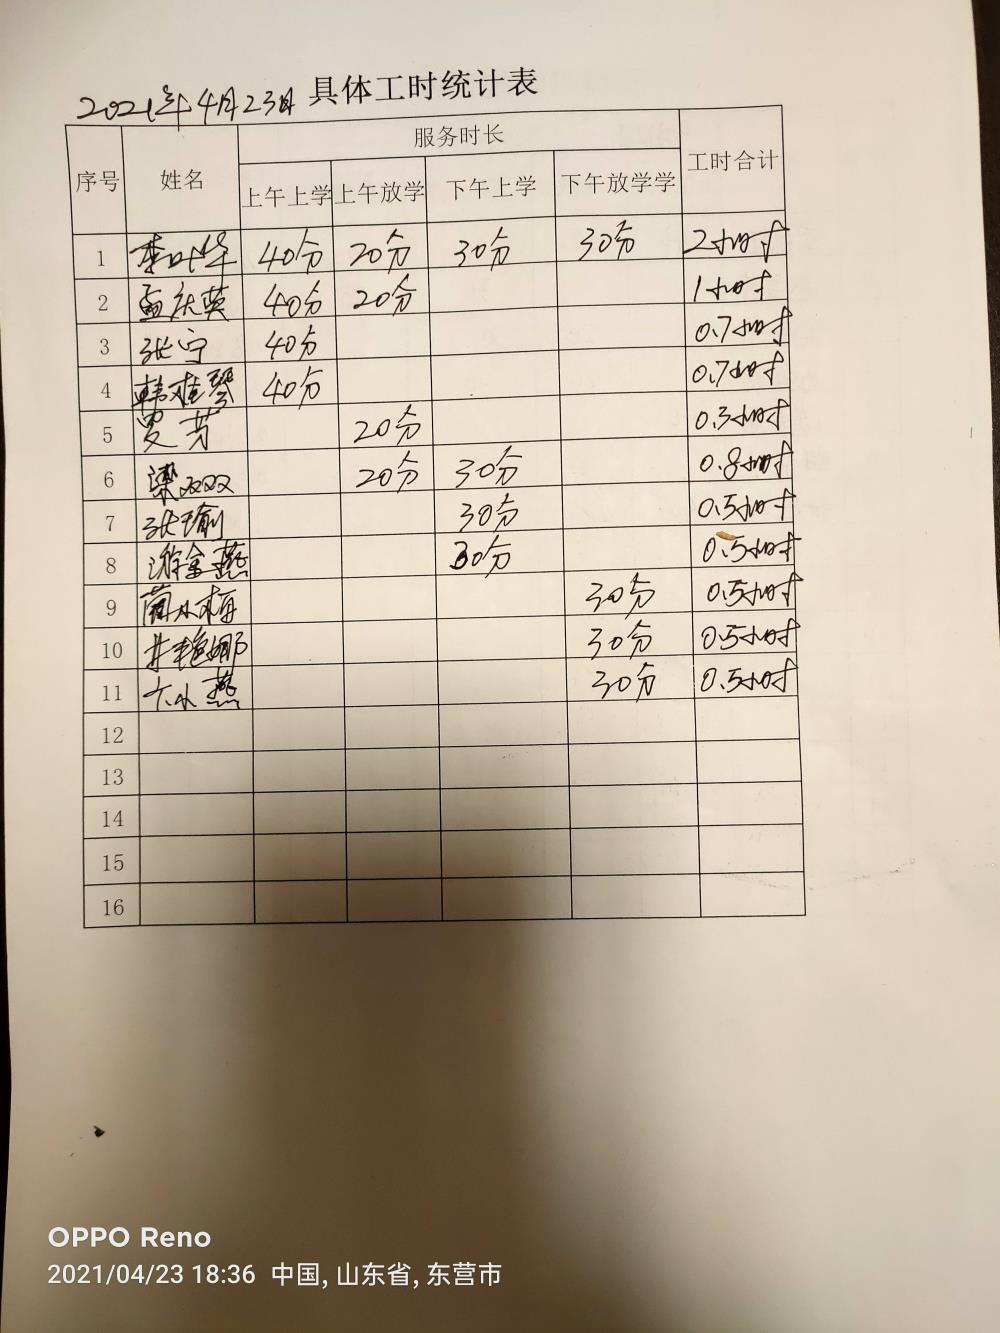 2021年4月23日 具体工时统计表
序号 姓名 服务时长 工时合计
上午上学 上午放学 下午上学 下午放学学
1 李叶华 40分 20分 30分 30分 2小时
2 孟庆英 40分 20分 1小时
3 张宁 40分 0.7小时
4 韩桂琴 40分 0.7小时
5 芳 20分 0.3小时
6 梁双双 20分 30分 0.8小时
7 张瑜 30分 0.5小时
8 金燕 30分 0.5小时
9 30分 0.5小时
10 井艳娜 30分 0.5小时
11 小燕 30分 0.5小时
12
13
14
15
16
OPPO Reno
2021/04/23 18:36 中国, 山东省, 东营市